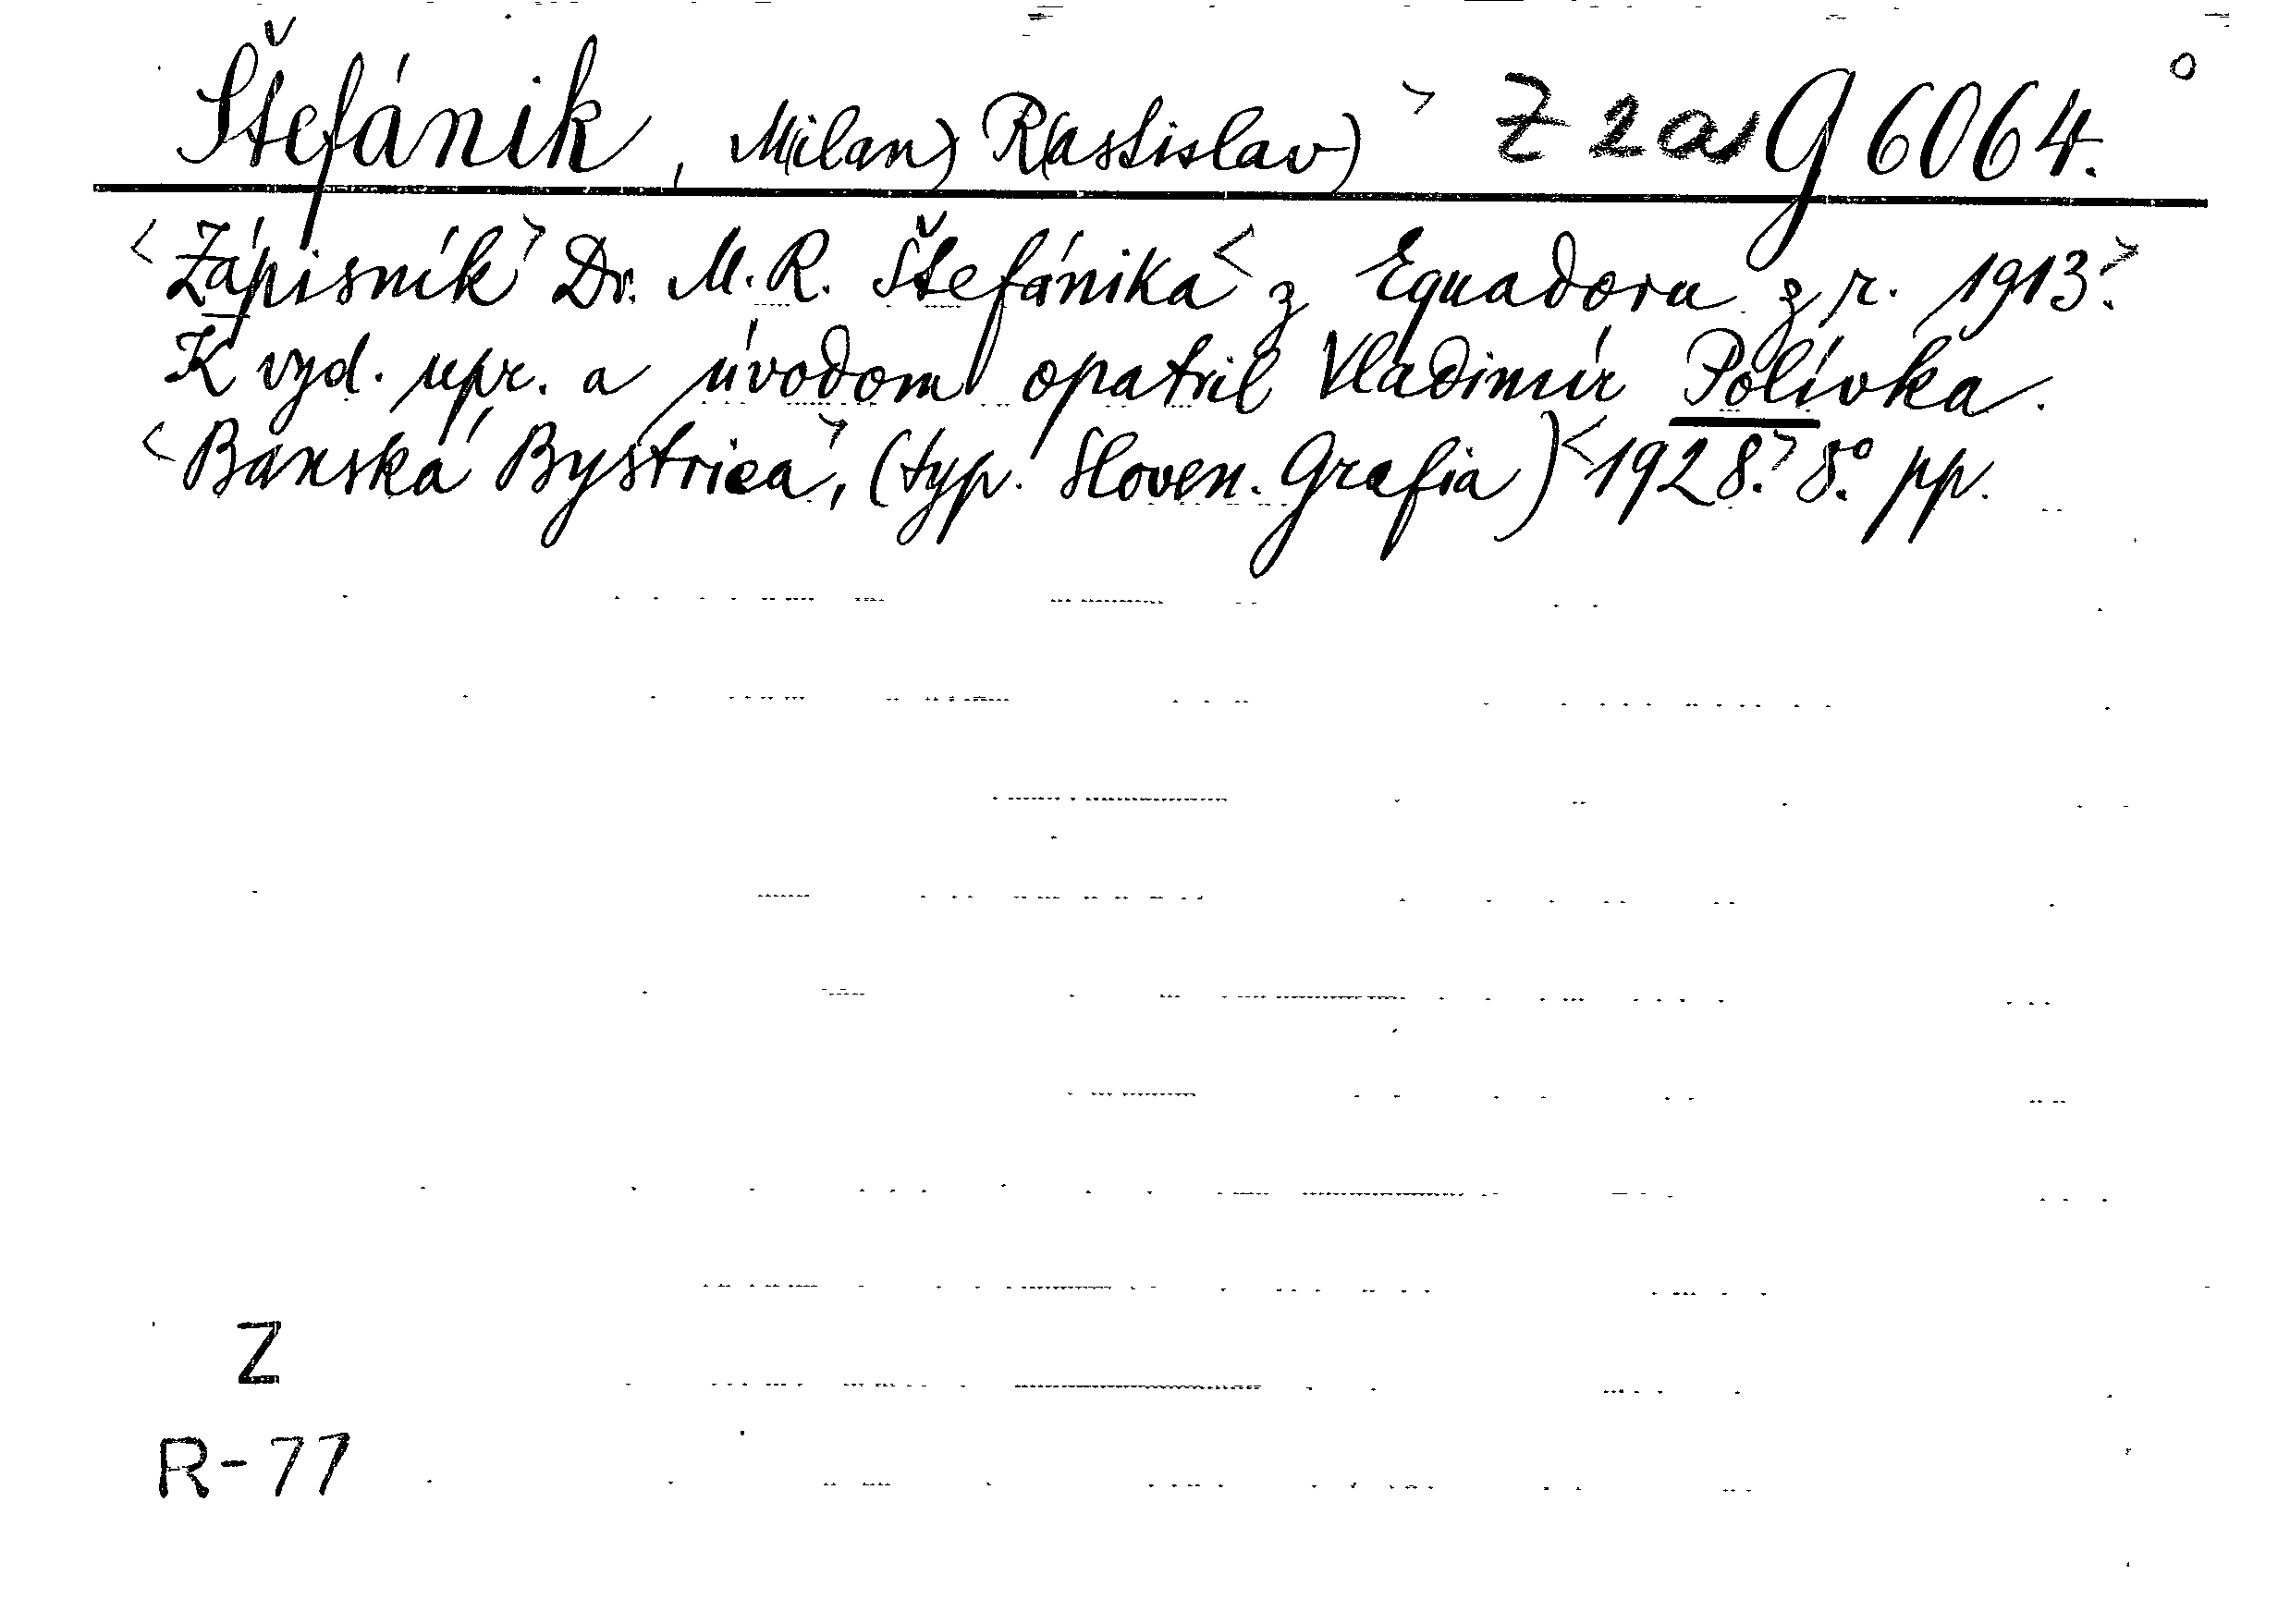 Štefánik, M(ilan) R(astislav) > Z za G 6064.
<Zápisník> Dr. M. R. Štefánika < z Equadoru z r. 1913.>
K vyd. upr. a úvodom opatril Vladimír Polívka.
<Banská Bystrica>, (typ. Sloven. Grafia) <1928.> 8°. pp.
Z
R-77